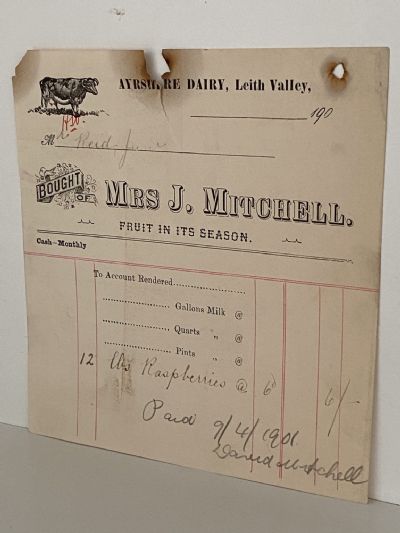 AYRSHIRE DAIRY, Leith Valley,
190
M
BOUGHT OF MRS J. MITCHELL.
FRUIT IN ITS SEASON.
Cash—Monthly
To Account Rendered
Gallons Milk @
Quarts „ @
Pints „ @
12 lbs Raspberries @ 6d 6/-
Paid 9/4/1901
David Mitchell